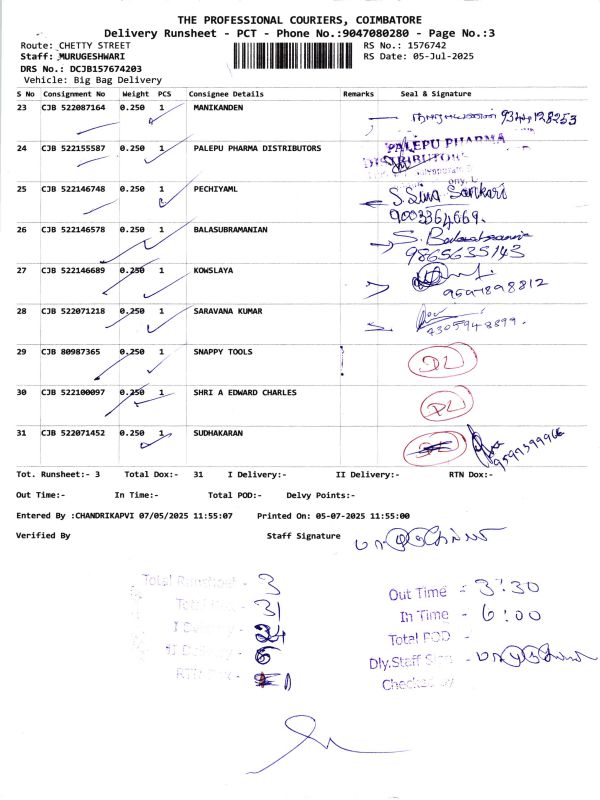 THE PROFESSIONAL COURIERS, COIMBATORE
Delivery Runsheet - PCT - Phone No.:9047080280 - Page No.:3
Route: CHETTY STREET
RS No.: 1576742
Staff: MURUGESHWARI
RS Date: 05-Jul-2025
DRS No.: DCJB157674203
Vehicle: Big Bag Delivery
S No Consignment No Weight PCS Consignee Details Remarks Seal & Signature
23 CJB 522087164 0.250 1 MANIKANDEN 9344128253
24 CJB 522155587 0.250 1 PALEPU PHARMA DISTRIBUTORS PALEPU PHARMA
DISTRIBUTORS
25 CJB 522146748 0.250 1 PECHIYAML S. Siva Sankari
9003364669.
26 CJB 522146578 0.250 1 BALASUBRAMANIAN S.
9865635143
27 CJB 522146689 0.250 1 KOWSLAYA
9597898812
28 CJB 522071218 0.250 1 SARAVANA KUMAR
29 CJB 80987365 0.250 1 SNAPPY TOOLS DL
30 CJB 522100097 0.250 1 SHRI A EDWARD CHARLES DL
31 CJB 522071452 0.250 1 SUDHAKARAN
Tot. Runsheet:- 3 Total Dox:- 31 I Delivery:- II Delivery:- RTN Dox:-
Out Time:- In Time:- Total POD:- Delvy Points:-
Entered By :CHANDRIKAPVI 07/05/2025 11:55:07 Printed On: 05-07-2025 11:55:00
Verified By Staff Signature
Total Runsheet - 3
Out Time - 3:30
31
In Time - 6:00
I Delivery - 24
Total POD -
II Delivery - 6
Dly.Staff Sign -
RTN
Checked By